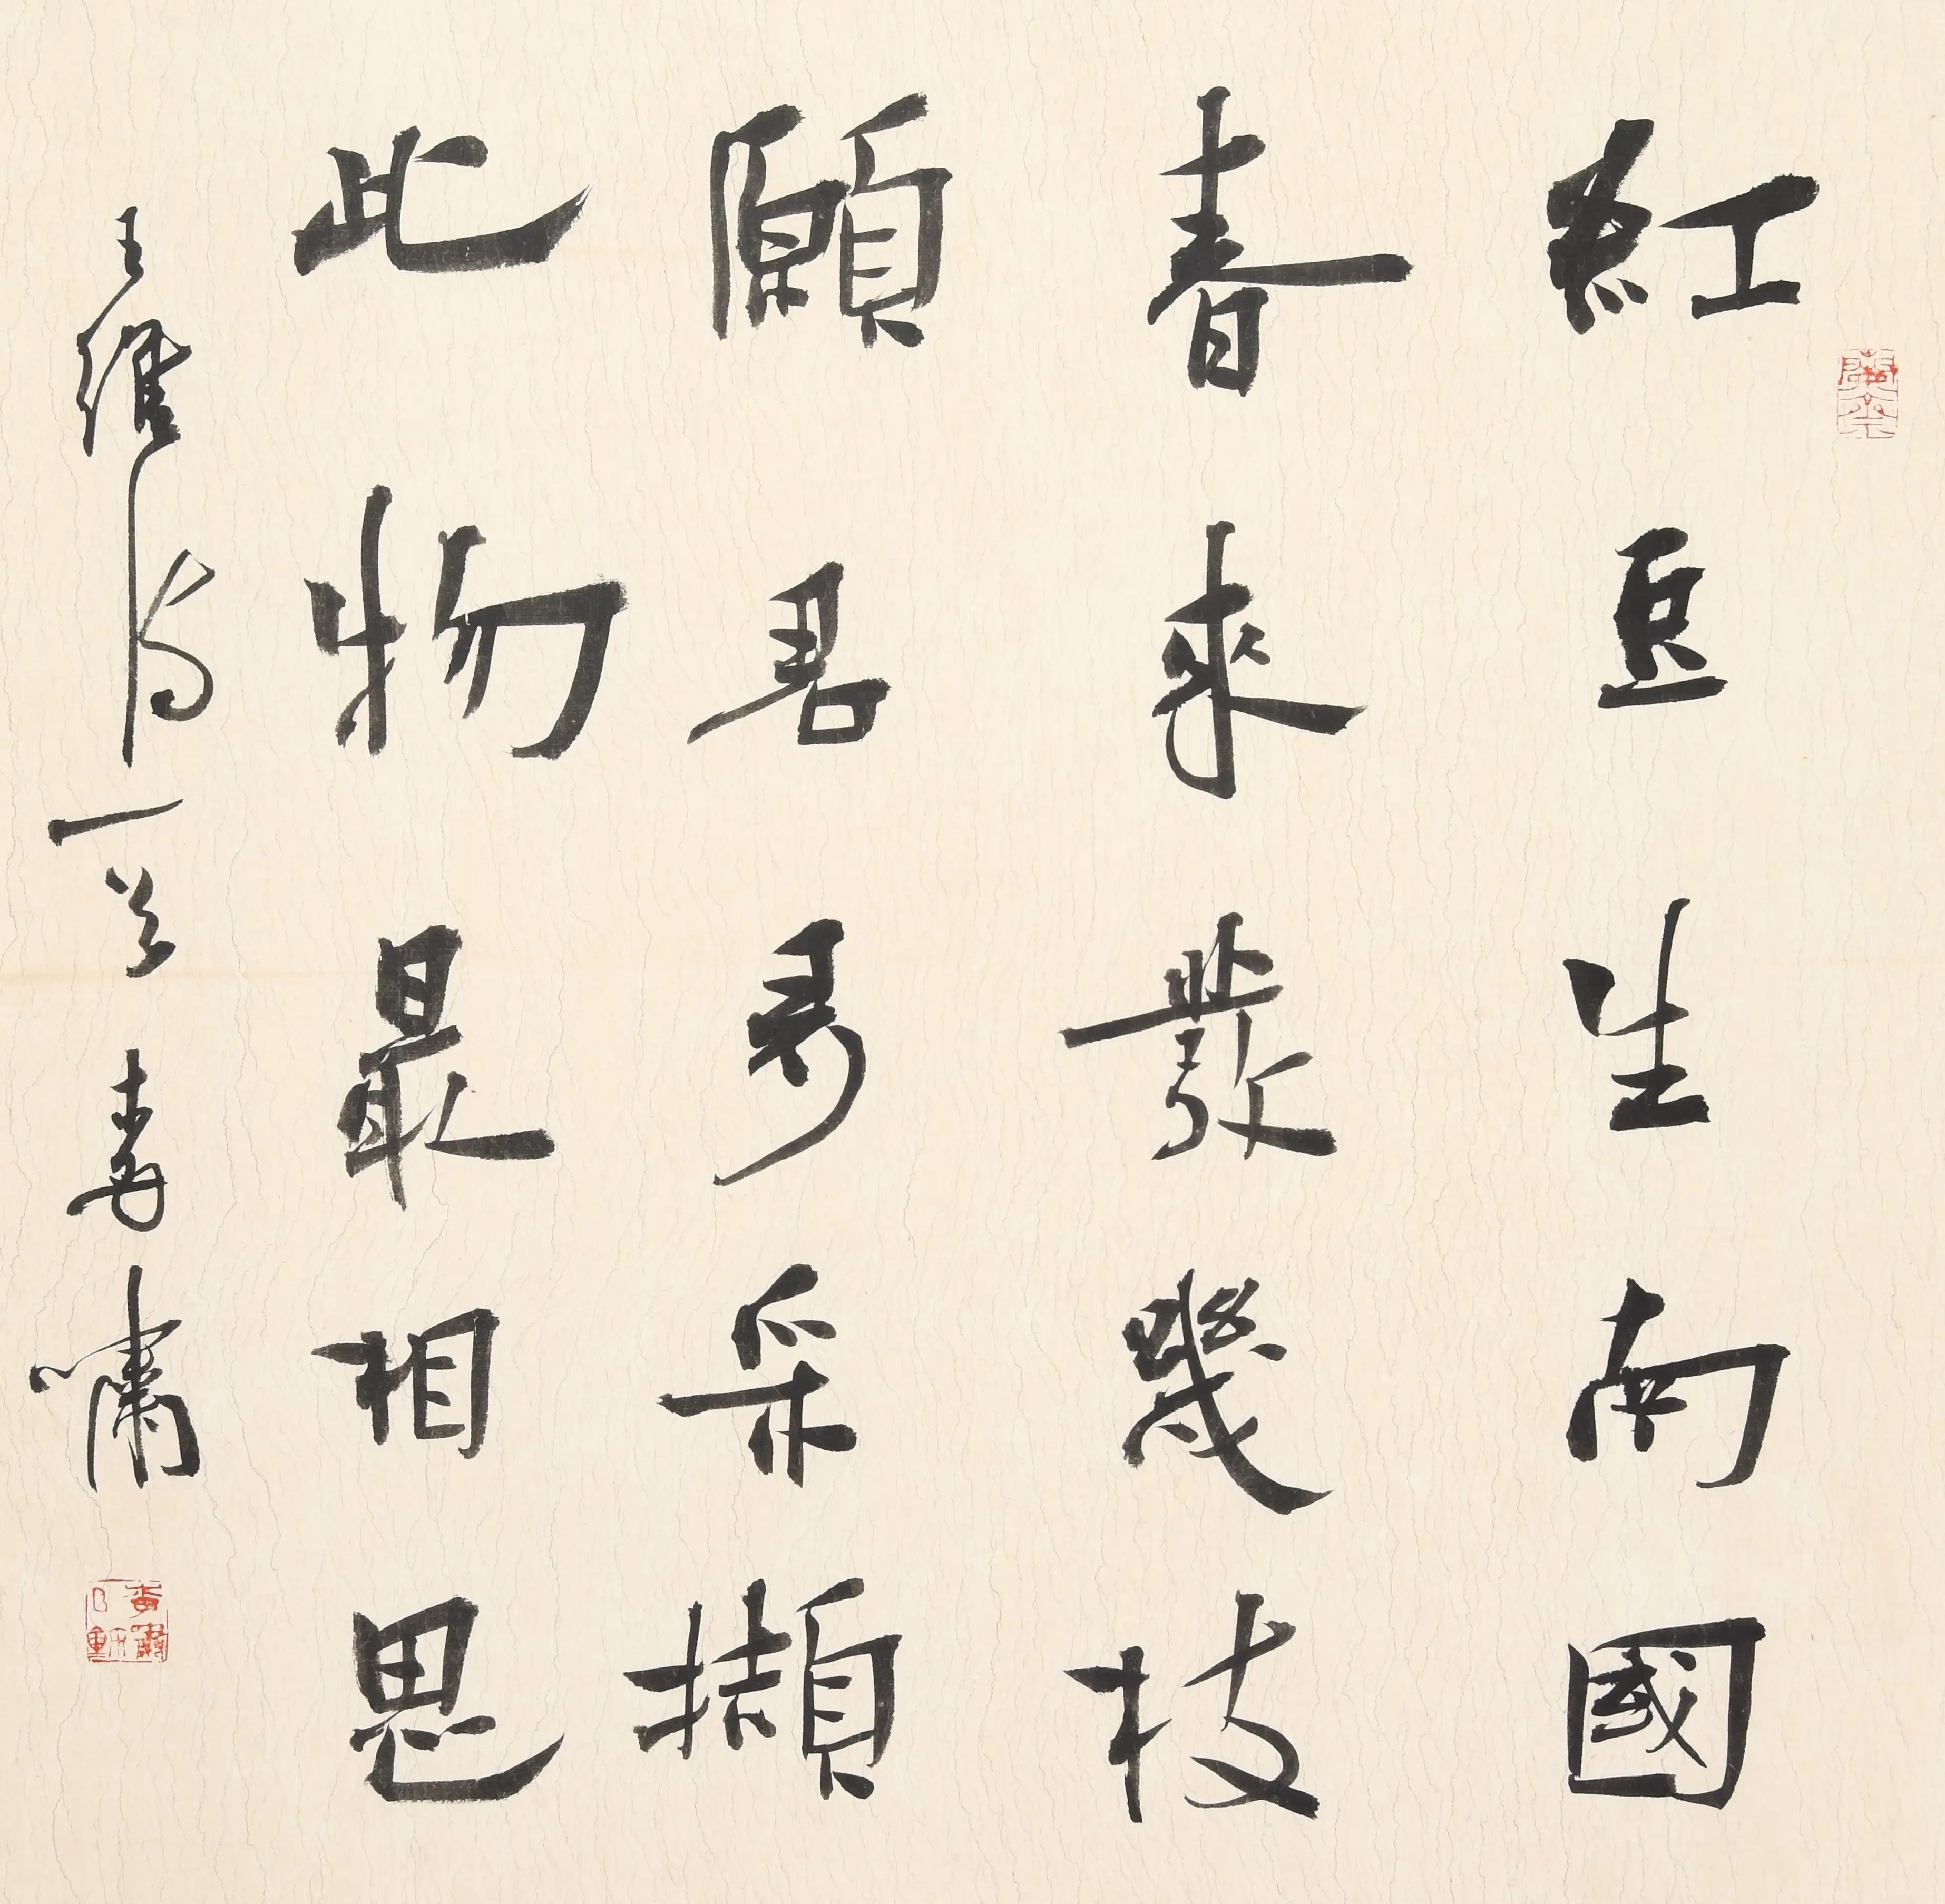 紅豆生南國
春來發幾枝
願君多采擷
此物最相思
王維詩一首 嘯